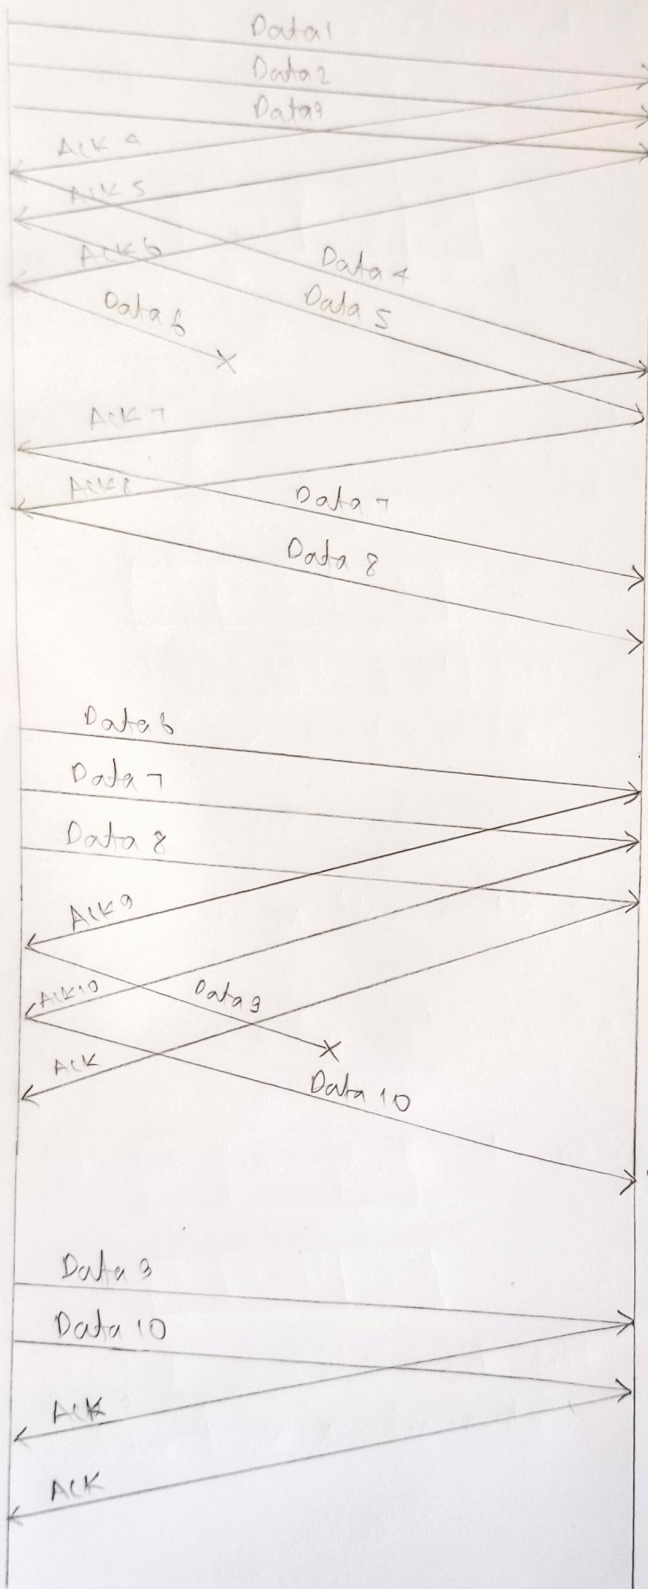 Data 1
Data 2
Data 3
Ack 4
Ack 5
Ack 6
Data 4
Data 5
Data 6
Ack 7
Ack 8
Data 7
Data 8
Data 6
Data 7
Data 8
Ack 9
Ack 10
Data 9
Ack
Data 10
Data 9
Data 10
Ack
Ack